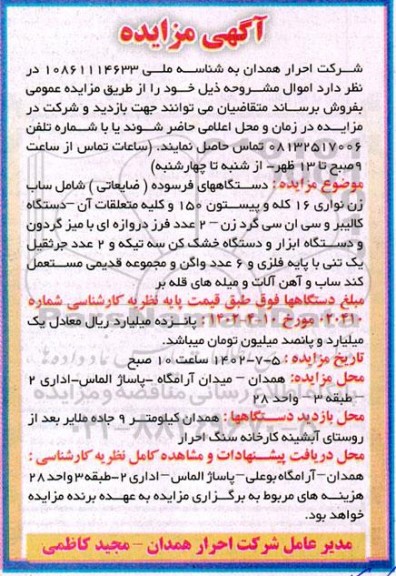 آگهی مزایده
شرکت احرار همدان به شناسه ملی ۱۰۸۶۱۱۱۴۶۳۳ در
نظر دارد اموال مشروحه ذیل خود را از طریق مزایده عمومی
بفروش برساند متقاضیان می توانند جهت بازدید و شرکت در
مزایده در زمان و محل اعلامی حاضر شوند یا با شماره تلفن
۰۸۱۳۲۵۱۷۰۰۶ تماس حاصل نمایند. (ساعات تماس از ساعت
۹صبح تا ۱۳ ظهر- از شنبه تا چهارشنبه)
موضوع مزایده : دستگاههای فرسوده ( ضایعاتی ) شامل ساب
زن نواری ۱۶ کله و پیستون ۱۵۰ و کلیه متعلقات آن -دستگاه
کالیبر و سی ان سی گرد زن- ۲ عدد فرز دروازه ای با میز گردون
و دستگاه ابزار و دستگاه خشک کن سه تیکه و ۲ عدد جرثقیل
یک تنی با پایه فلزی و ۶ عدد واگن و مجموعه قدیمی مستعمل
کند ساب و آهن آلات و میله های قله بر
مبلغ دستگاهها فوق طبق قیمت پایه نظریه کارشناسی شماره
مورخ : پانزده میلیارد ریال معادل یک
میلیارد و پانصد میلیون تومان میباشد.
تاریخ مزایده : ۵-۷-۱۴۰۲ ساعت ۱۰ صبح
محل مزایده: همدان - میدان آرامگاه -پاساژ الماس-اداری ۲
-طبقه ۳- واحد ۲۸
محل بازدید دستگاهها: همدان کیلومتر ۹ جاده ملایر بعد از
روستای آبشینه کارخانه سنگ احرار
محل دریافت پیشنهادات و مشاهده کامل نظریه کارشناسی :
همدان-آرامگاه بوعلی-پاساژ الماس- اداری ۲-طبقه۳واحد ۲۸
هزینه های مربوط به برگزاری مزایده به عهده برنده مزایده
خواهد بود.
مدیر عامل شرکت احرار همدان - مجید کاظمی